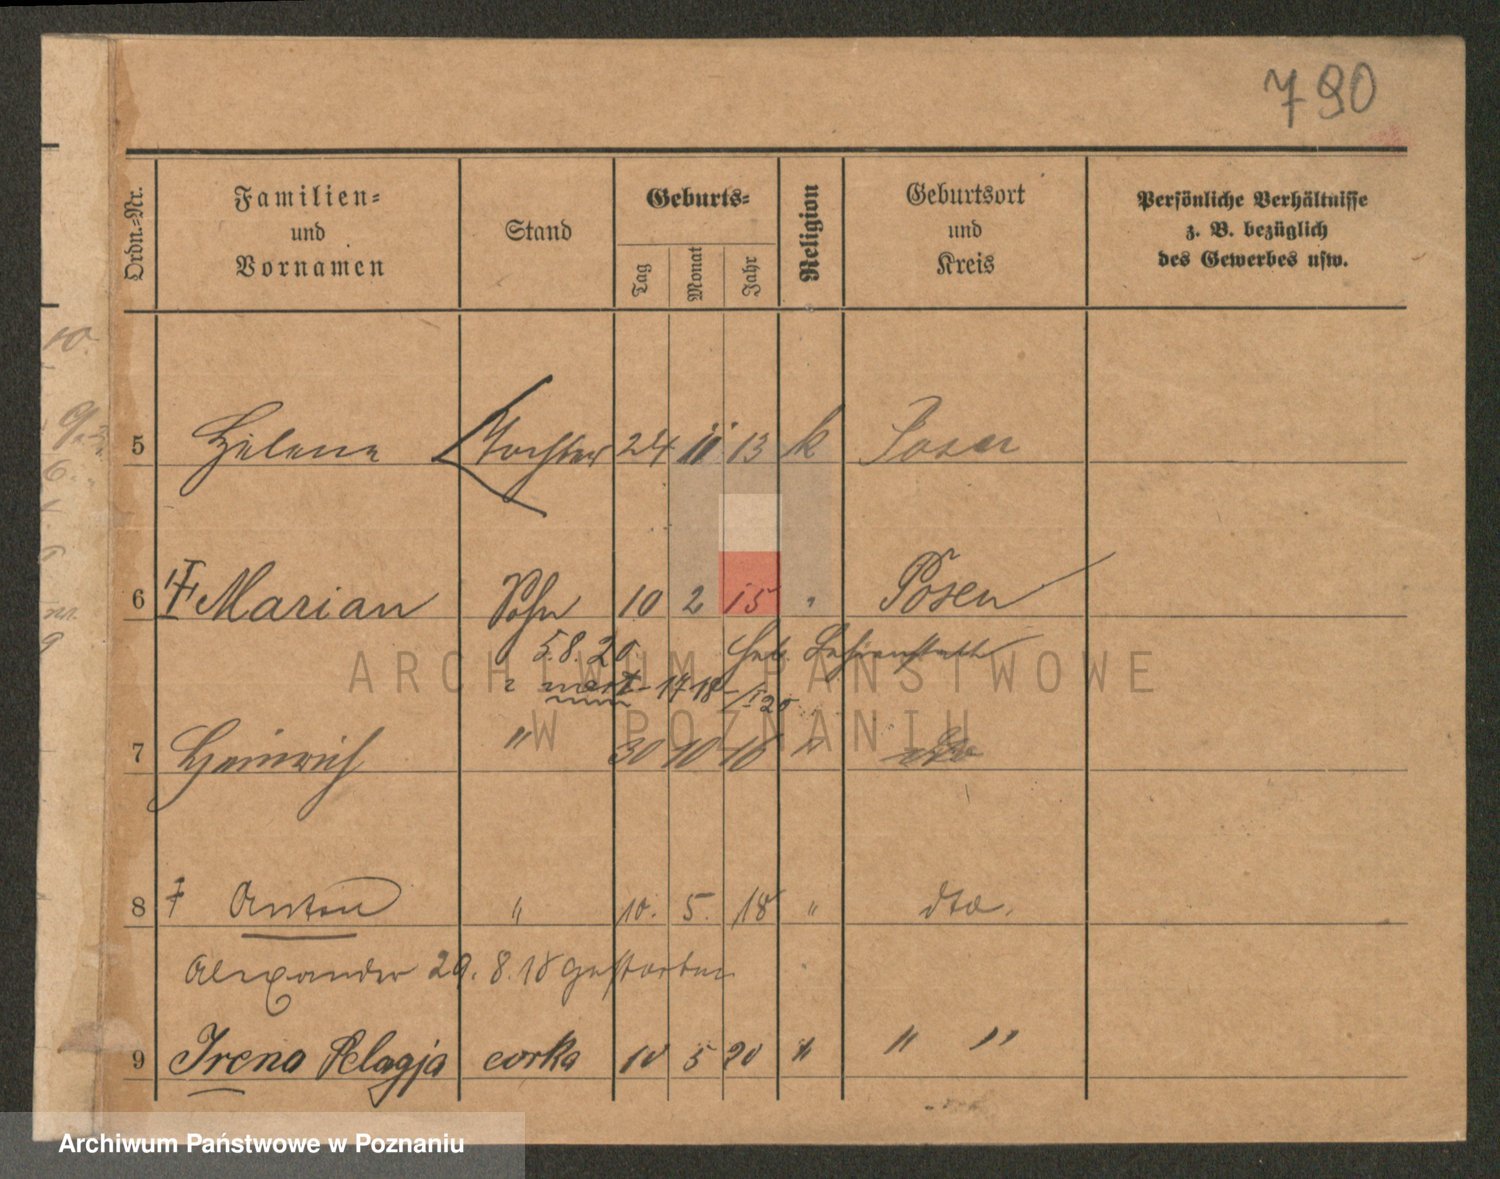 790
Ordn.-Nr. Familien- und Vornamen Stand Geburts- Tag Monat Jahr Religion Geburtsort und Kreis Persönliche Verhältnisse z. B. bezüglich des Gewerbes usw.
5 Helene Tochter 24 11 13 k Posen
6 Marian Sohn 10 2 15 " Posen
5.8.20.
7 Heinrich " 30 10 16 "
8 Anton " 10. 5. 18 " dto.
Alexander 29. 8. 18 gestorben
9 Irena Pelagja corka 10 5 20 " " "
ARCHIWUM PAŃSTWOWE
W POZNANIU
Archiwum Państwowe w Poznaniu